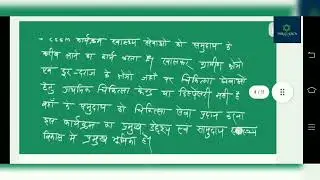 - CCGM कार्यक्रम स्वास्थ्य सेवाओं को समुदाय के
करीब लाने का कार्य करता है। खासकर ग्रामीण क्षेत्रों
एवं दूर-दराज के क्षेत्रों जहाँ पर चिकित्सा सेवाओं
हेतु प्राथमिक चिकित्सा केन्द्र या डिस्पेंसरी नहीं है
वहाँ के समुदाय को चिकित्सा सेवा प्रदान करना
इस कार्यक्रम का प्रमुख उद्देश्य एवं सामुदाय स्वास्थ्य
विकास में प्रमुख भूमिका है।
4/11